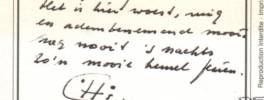 Het is hier woest, ruig
en adembenemend mooi.
nog nooit 's nachts
zo'n mooie hemel gezien.
Reproduction Interdite - Impri